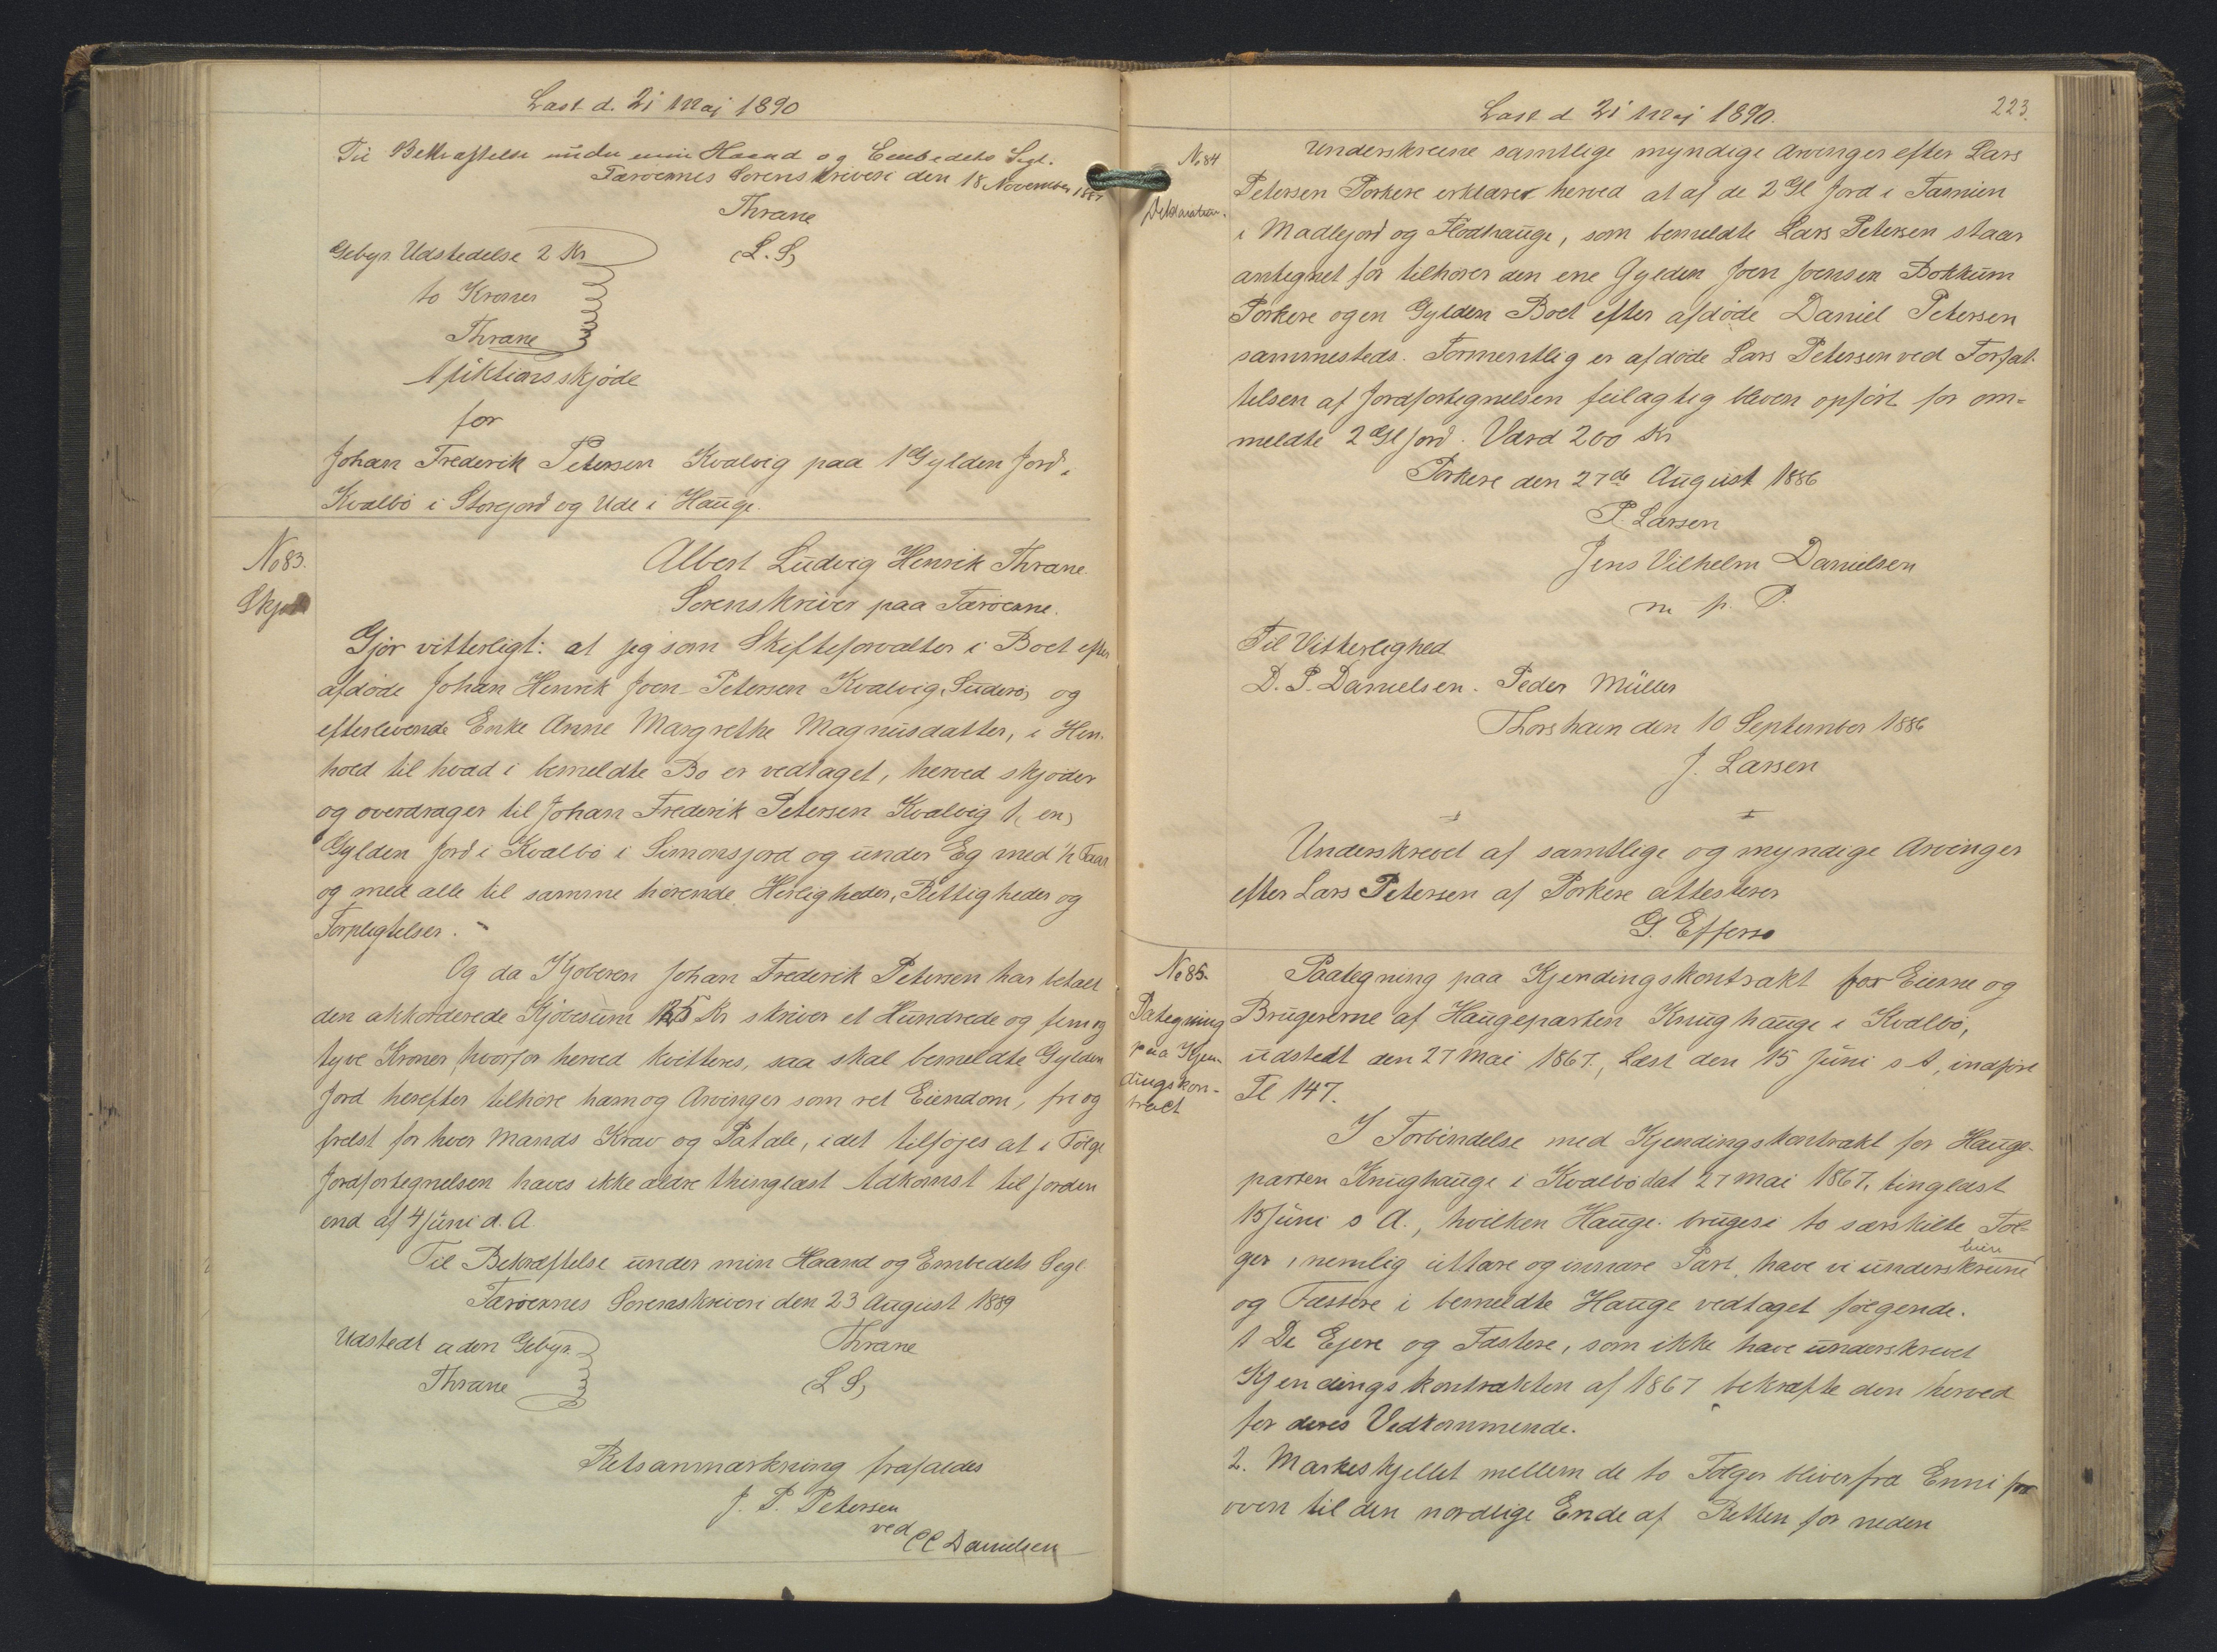 Læst d. 21 Maj 1890
Til Bekræftelse under min Haand og Embedets Segl.
Færøernes Sorenskriveri den 18 November 1887
Thrane
Gebyr Udstedelse 2 Kr
(L. S)
to Kroner
Thrane
Auktionsskjøde
for
Johan Frederik Petersen Kvalvig paa 1 Gylden Jord i
Kvalbø i Storejord og Ude i Hauge.
No 83.
Skjøde
Albert Ludvig Henrik Thrane
Sorenskriver paa Færøerne.
Gjør vitterligt: at jeg som Skifteforvalter i Boet efter
afdøde Johan Henrik Joen Petersen Kvalvig, Suderø, og
efterlevende Enke Anne Margrethe Magnusdatter, i Hen-
hold til hvad i bemeldte Bo er vedtaget, herved skjøder
og overdrager til Johan Frederik Petersen Kvalvig 1 (en)
Gylden Jord i Kvalbø i Simonsjord og under Eg med 1/2 Faar
og med alle til samme hørende Herligheder, Rettigheder og
Forpligtelser.
Og da Kjøberen Johan Frederik Petersen har betalt
den akkorderede Kjøbesum 125 Kr skriver et Hundrede og fem og
tyve Kroner, hvorfor herved kvitteres, saa skal bemeldte Gylden
Jord herefter tilhøre ham og Arvinger som ret Eiendom, fri og
frelst for hver Mands Krav og Patale, idet tilføjes at i Følge
Jordfortegnelsen haves ikke ældre thinglæst Adkomst til Jorden
end af 4 Juni d. A.
Til Bekræftelse under min Haand og Embedets Segl
Færøernes Sorenskriveri den 23 August 1889
Udstedt uden Gebyr.
Thrane
Thrane
(L S)
Retsanmærkning frafaldes
J. P. Petersen
ved
Danielsen
Læst d 21 Maj 1890.
223.
No 84
Deklaration.
Underskrevne samtlige myndige Arvinger efter Lars
Petersen Porkere erklærer herved at af de 2 Gl Jord i Famien
i Madlejord og Flodhauge, som bemeldte Lars Petersen staar
antegnet for tilhører den ene Gylden Joen Joensen Bokkum
Porkere og en Gylden Boet efter afdøde Daniel Petersen
sammesteds. Formentlig er afdøde Lars Petersen ved Forfat-
telsen af Jordfortegnelsen feilagtig bleven opført for om-
meldte 2 Gl Jord. Værd 200 Kr
Porkere den 27de August 1886
P. Larsen
Jens Vilhelm Danielsen
m. p. P.
Til Vitterlighed
D. P. Danielsen. Peder Müller
Thorshavn den 10 September 1886
J. Larsen
Underskrevet af samtlige og myndige Arvinger
efter Lars Petersen af Porkere attesterer
G. Effersø
No 85.
Pategning
paa Kjen
dingskon-
tract
Paategning paa Kjendingskontrakt for Eierne og
Brugererne af Haugeparten Knughauge i Kvalbø,
udstedt den 27 Mai 1867, Læst den 15 Juni s A, indført
Fl 147.
I Forbindelse med Kjendingskontrakt for Hauge-
parten Knughauge i Kvalbø dat 27 Mai 1867, tinglæst
15 Juni s A., hvilken Hauge bruges i to særskilte Føl-
ger, nemlig uttare og innare Part, have vi underskrevne
Eiere
og Fæstere i bemeldte Hauge vedtaget følgende.
1 De Ejere og Fæstere, som ikke have underskrevet
Kjendingskontrakten af 1867 bekræfte den herved
for deres Vedkommende.
2. Markeskjellet mellem de to Følger bliver fra Enni for
oven til den nordlige Ende af Retten for neden